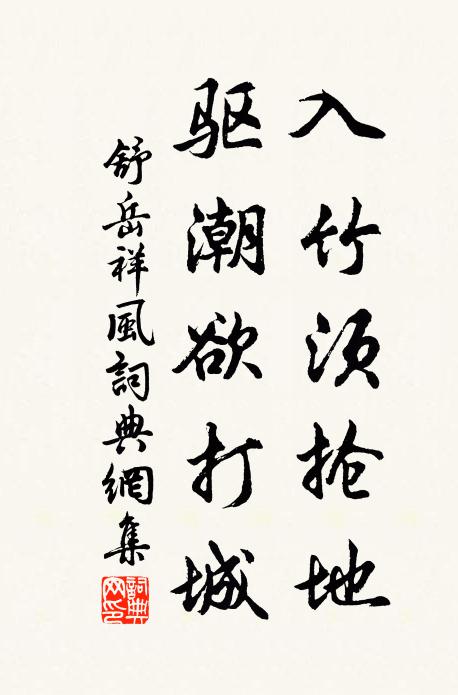 入竹须抢地
驱潮欲打城
舒岳祥風詞典網集
詞典網印